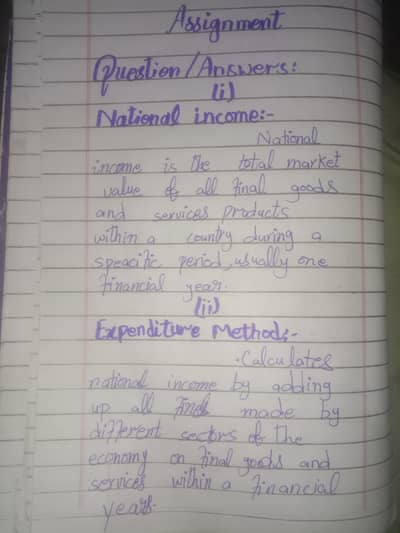 Assignment
Question/Answers:
(i)
National income:-
National
income is the total market
value of all final goods
and services products
within a country during a
speacific period, usually one
financial year.
(ii)
Expenditure Method:-
Calculates
national income by adding
up all made by
different sectors of the
economy on final goods and
services within a financial
years.